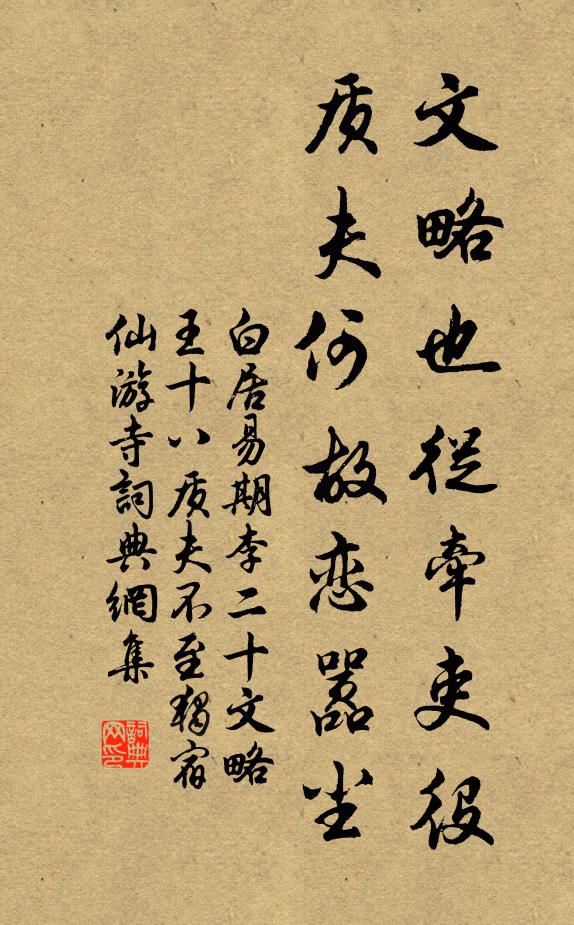 文略也從牵吏役
质夫何故恋嚣尘
白居易期李二十文略
王十八质夫不至独宿
仙游寺詞典網集
詞典
网印